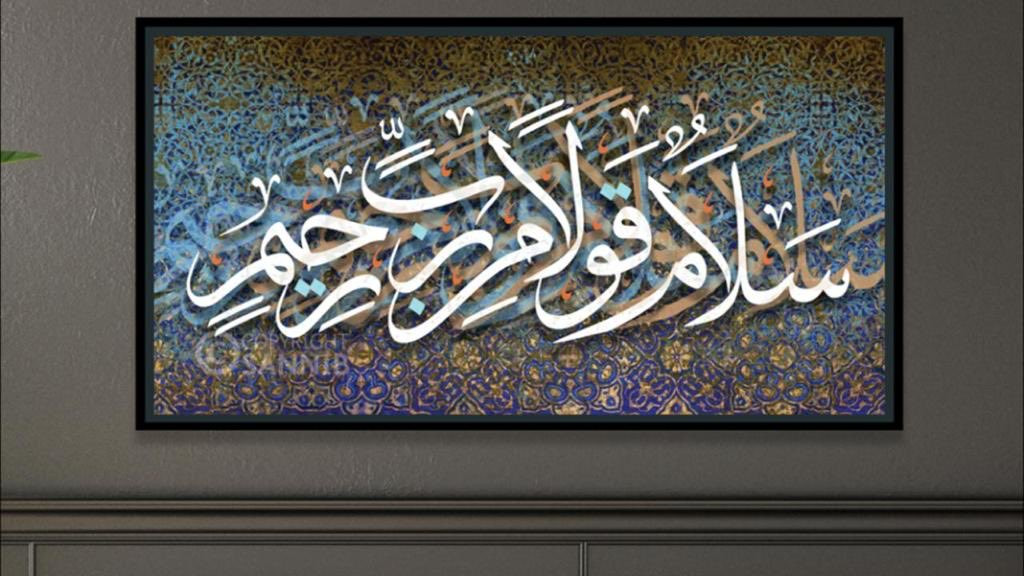 سَلَامٌ قَوْلًا مِنْ رَبٍّ رَحِيمٍ
COPYRIGHT
SANNIB